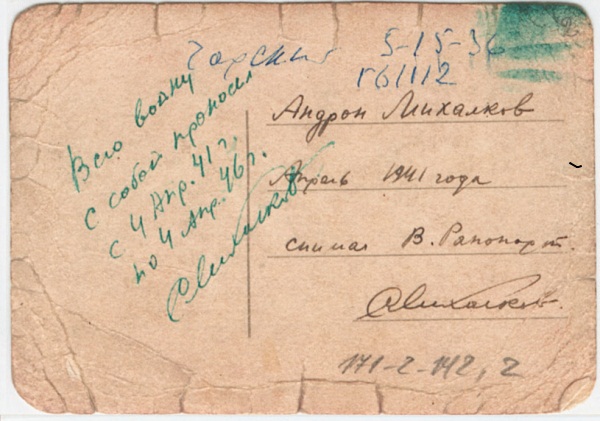 5-15-36
Г61112
Всю войну
с собой проносил
с 4 Апр. 41 г.
по 4 Апр. 46 г.
СМихалков
Андрон Михалков
Апрель 1941 года
снимал В. Рапопорт.
СМихалков.
171-2-142, 2